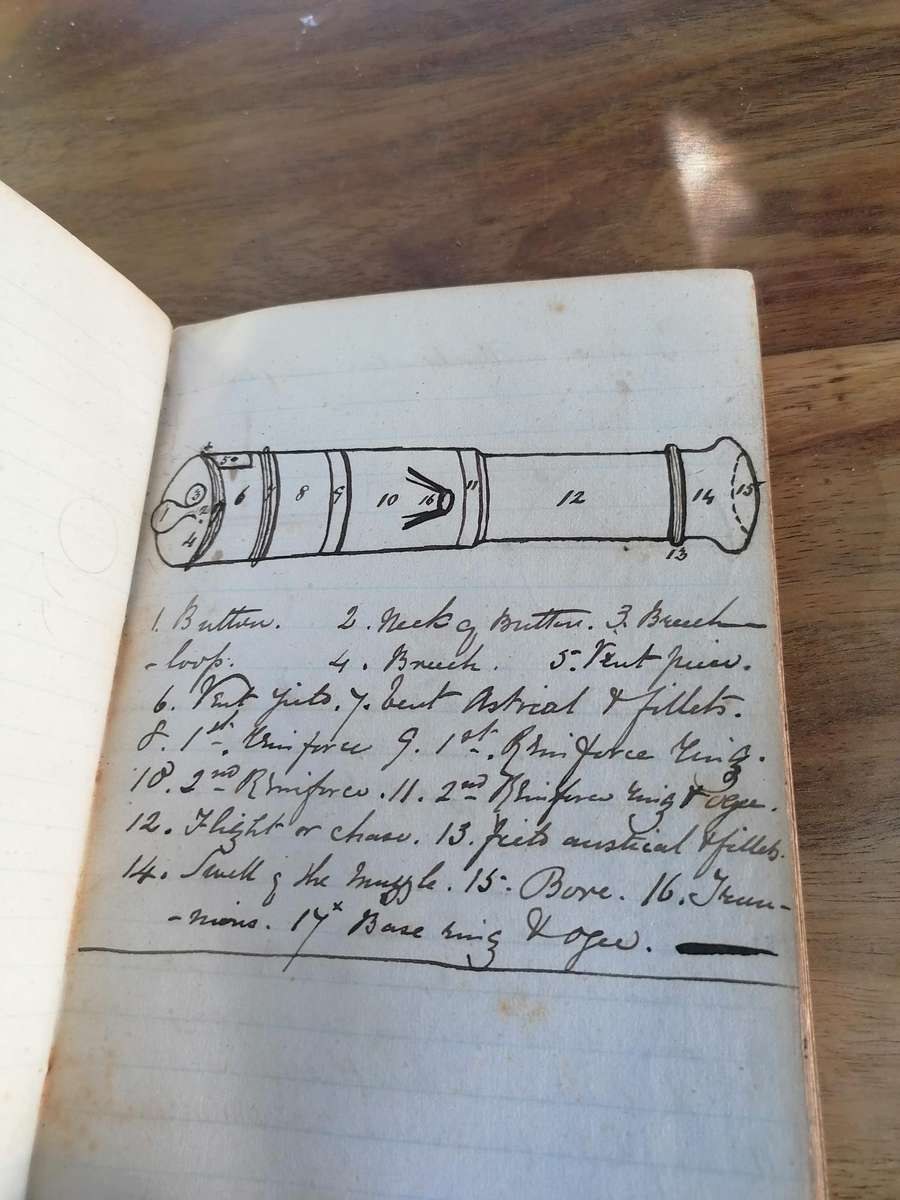 5
3
1
2
4
6
7
8
9
10
16
11
12
13
14
15
1. Button. 2. Neck of Button. 3. Breech
-loop. 4. Breech. 5. Vent piece.
6. Vent field. 7. Vent Astrial & fillets.
8. 1st. Reinforce 9. 1st. Reinforce ring.
10. 2nd Reinforce. 11. 2nd Reinforce ring & ogee.
12. Flight or chase. 13. austrical & fillets.
14. Swell of the Muzzle. 15. Bore. 16. Trun-
-nions. 17x Base ring & ogee.